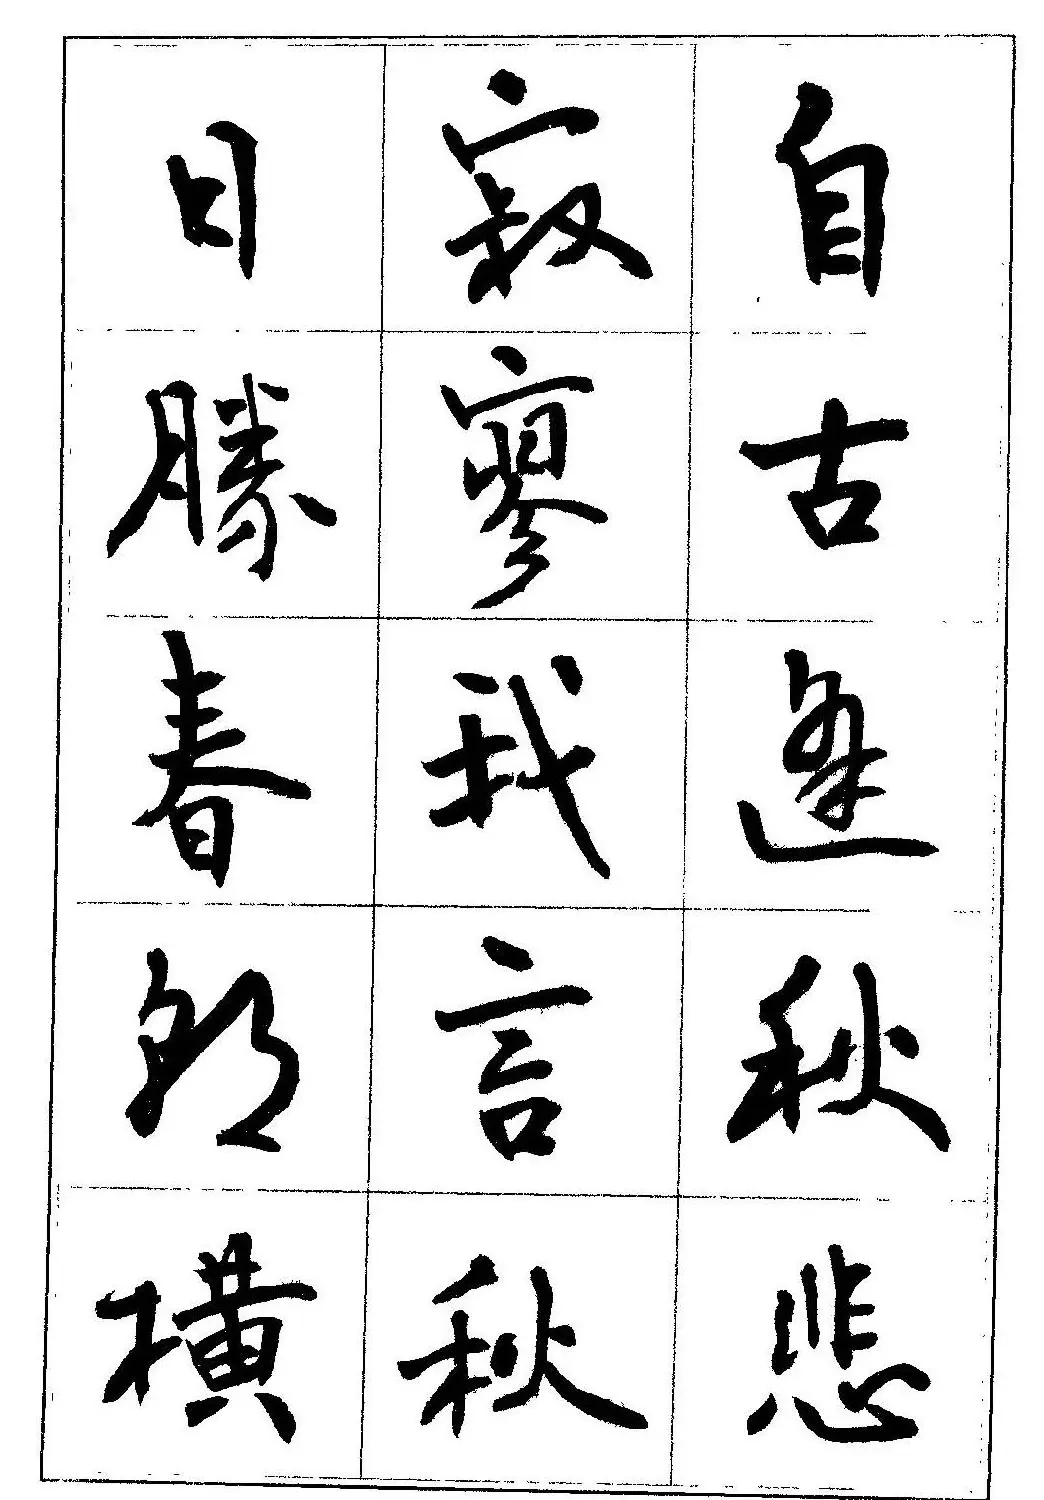 自古逢秋悲
寂寥我言秋
日勝春朝橫